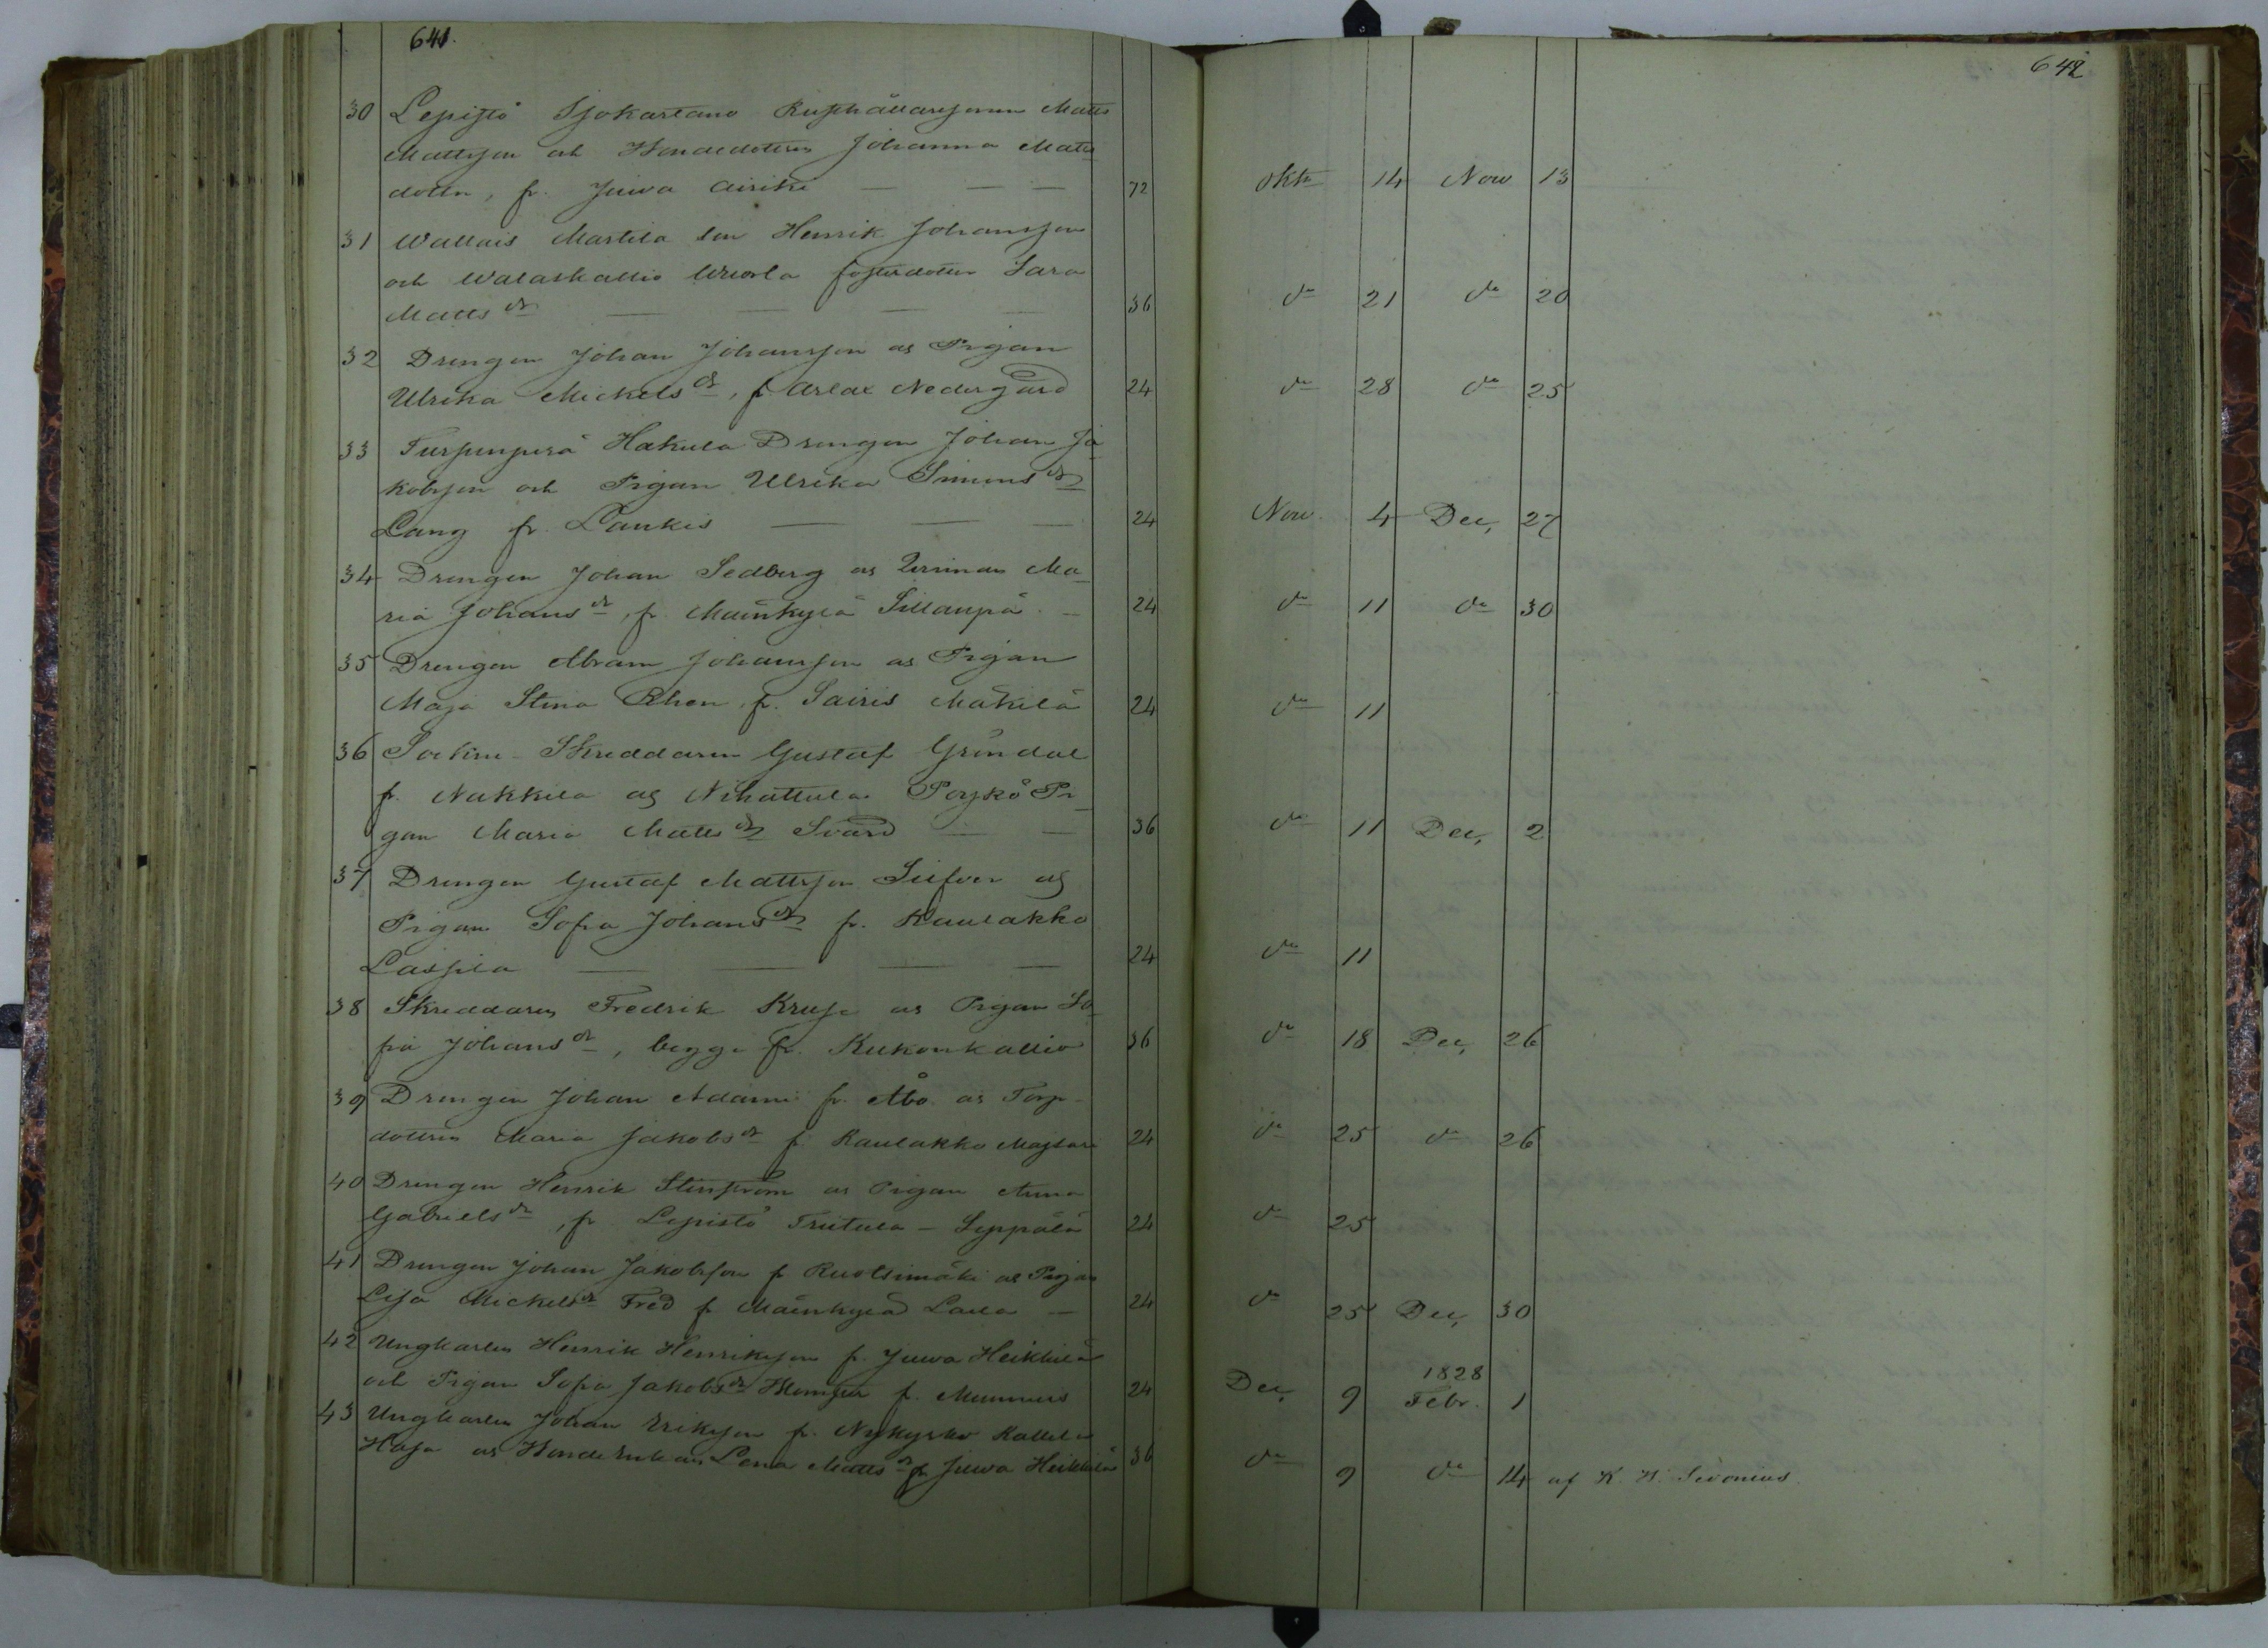 641.
642
30 Lepistö Sjokartano Rusthållaresonen Matts
Mattsson och Bondedottren Johanna Matts
dotter, fr. Juwa Airikki — — 72 Oktr 14 Now 13
31 Wallais Martila son Henrik Johansson
och Walaskallio Uusola fosterdotter Sara
Matts dr — — — — 36 do 21 do 20
32 Drengen Johan Johansson og Pigan
Ulrika Mickels dr, fr Arlax Nedergård 24 do 28 do 25
33 Turpinperä Hakula Drengen Johan Ja-
kobsson och Pigan Ulrika Simons dr
Lang fr. Lankis — — — 24 Now. 4 Dec, 27
34 Drengen Johan Sedberg og Qvinnan Ma-
ria Johans dr, fr. Mainkylä Sillanpä — 24 do 11 do 30
35 Drengen Abram Johansson og Pigan
Maja Stina Rhen fr. Sairis Mäkilä 24 do 11
36 Sockne-Skreddaren Gustaf Gröndal
fr. Nakkila og Nihattula Poykö Pi-
gan Maria Matts dr Svärd — — 36 do 11 Dec, 2
37 Drengen Gustaf Mattsson Silfver og
Pigan Sofia Johans dr fr. Raulakko
Lassila — — — — 24 do 11
38 Skreddaren Fredrik Kruse og Pigan So-
fia Johans dr, begge fr. Kukonkallio 36 do 18 Dec, 26
39 Drengen Johan Adami fr. Åbo og Torp-
dottren Maria Jakobs dr fr. Raulakko Majsari 24 do 25 do 26
40 Drengen Henrik Stenström og Pigan Anna
Gabriels dr, fr Lepistö Triitula - Seppälä 24 do 25
41 Drengen Johan Jakobsson fr Ruotsimäki og Pigan
Lisa Mickels dr Fred fr Mainkylä Laila — 24 do 25 Dec, 30
42 Ungkarlen Henrik Henriksson fr. Juwa Heikkilä
1828
och Pigan Sofia Jakobs dr fr. Mummis 24 Dec, 9 Febr. 1
43 Ungkarlen Johan Eriksson fr. Nykyrko Kallela
Haja og Bonde Enkan Lena Matts dr fr Juwa Heikkilä 36 do 9 do 14 af K. H. Sivonius.